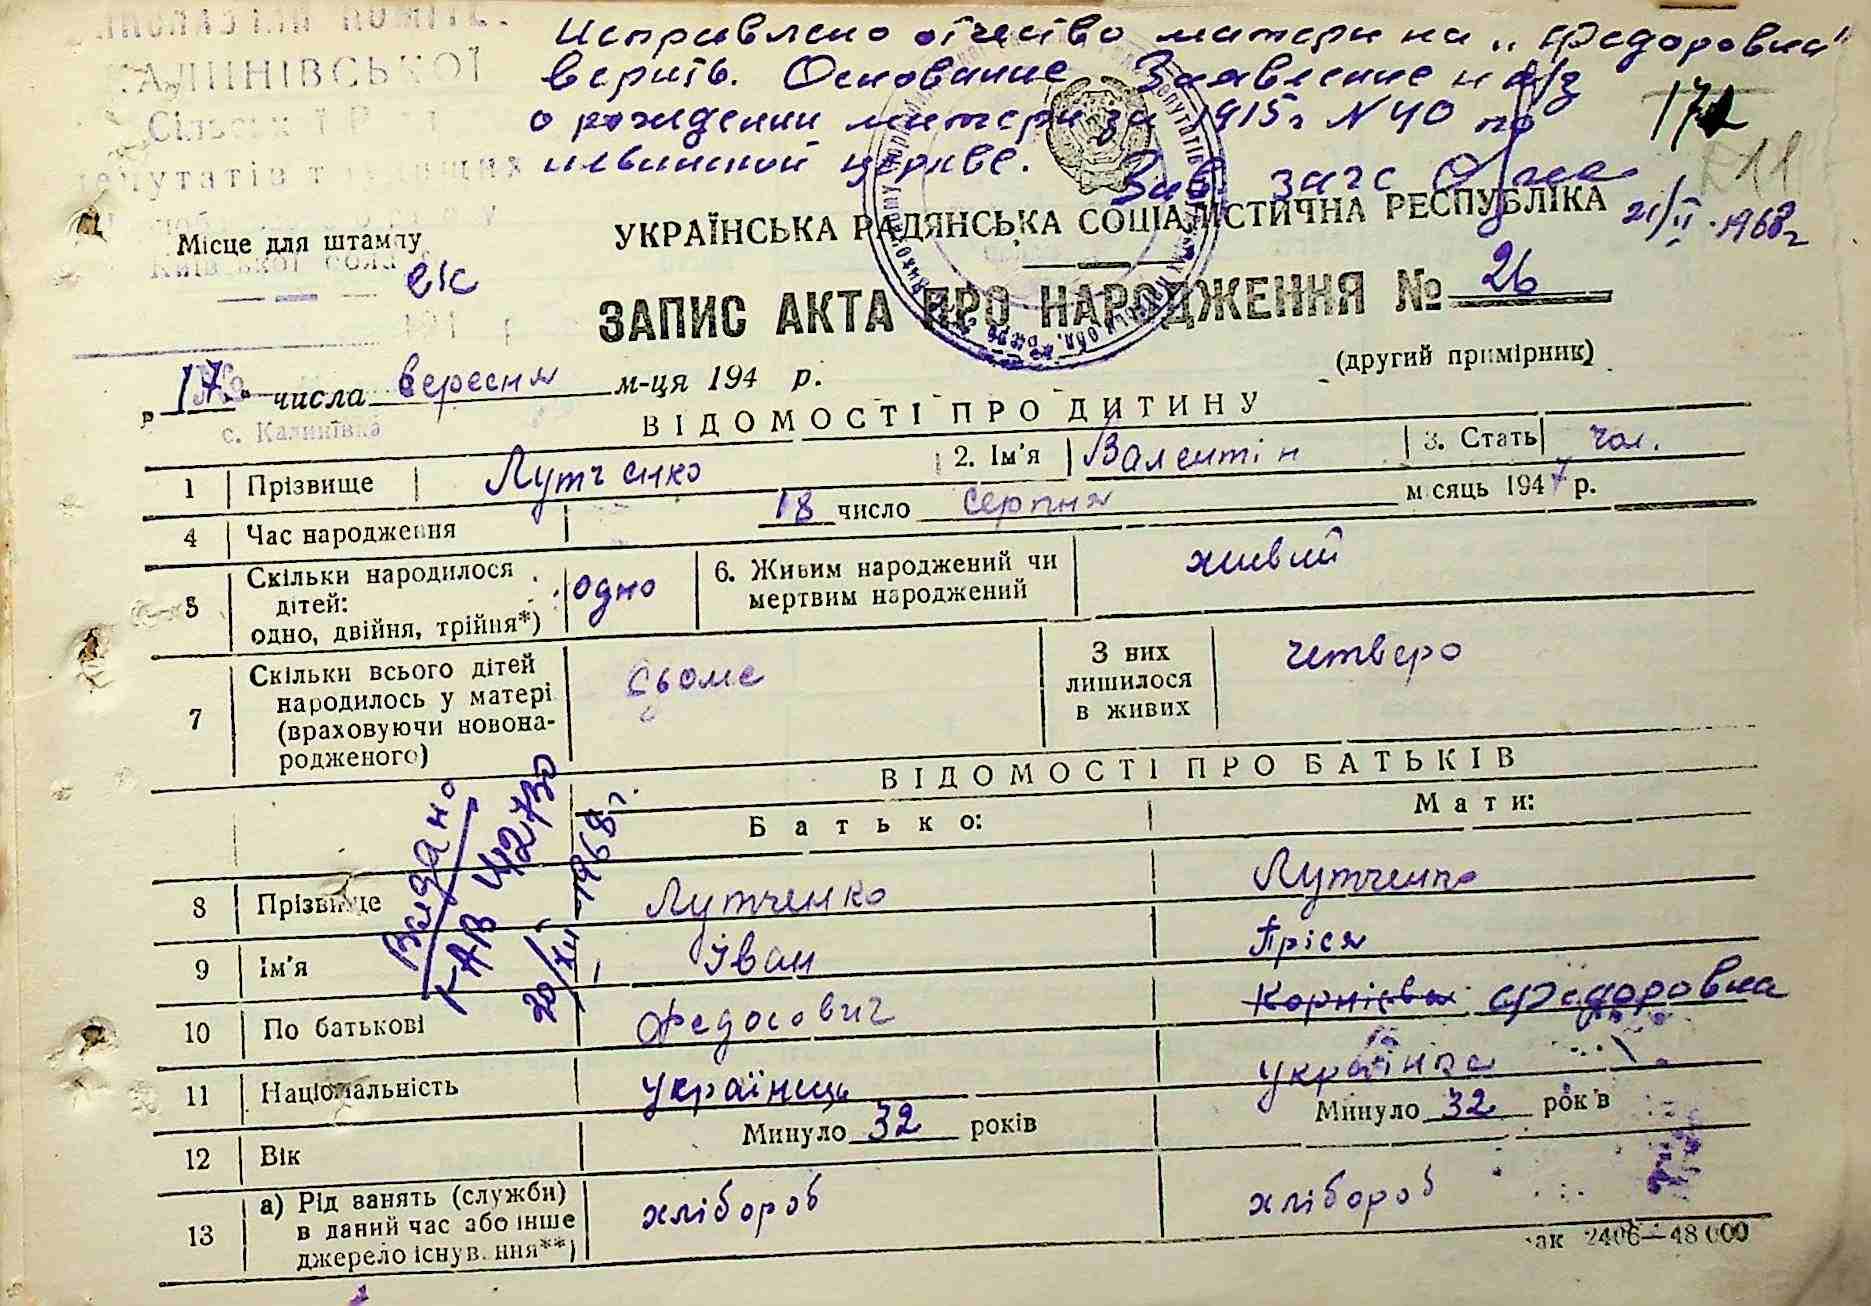 Исправлено отчество матери на „Федоровна"
верить. Основание Заявление и а/з
о рождении матери за 1915 г N 40 по
церкве. Зав. загс
21/II 1968 г
172
КАЛИНІВСЬКОЇ
Місце для штампу
УКРАЇНСЬКА РАДЯНСЬКА СОЦІАЛІСТИЧНА РЕСПУБЛІКА
ЗАПИС АКТА ПРО НАРОДЖЕННЯ № 26
(другий примірник)
„17" числа вересня м-ця 194 р.
с. Калинівка
ВІДОМОСТІ ПРО ДИТИНУ
1 Прізвище Лутченко 2. Ім'я Валентін 3. Стать чол.
4 Час народження 18 число серпня місяць 1947 р.
5 Скільки народилося дітей: одно, двійня, трійня*) одно 6. Живим народжений чи мертвим народжений живий
7 Скільки всього дітей народилось у матері (враховуючи новонародженого) сьоме З них лишилося в живих четверо
ВІДОМОСТІ ПРО БАТЬКІВ
Батько: Мати:
Видано
1968 г.
8 Прізвище Лутченко Лутченко
9 Ім'я Іван Пріся
10 По батькові Федосович Корнієвна Федоровна
11 Національність Українець Українка
12 Вік Минуло 32 років Минуло 32 років
13 а) Рід занять (служби) в даний час або інше джерело існування**) хлібороб хлібороб
2406—48 000